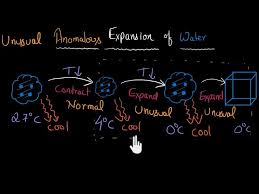 Unusual Anomalous Expansion of Water
T↓ T↓
Contract Expand Expand
Normal Unusual Unusual
27°C cool 4°C cool 0°C cool 0°C